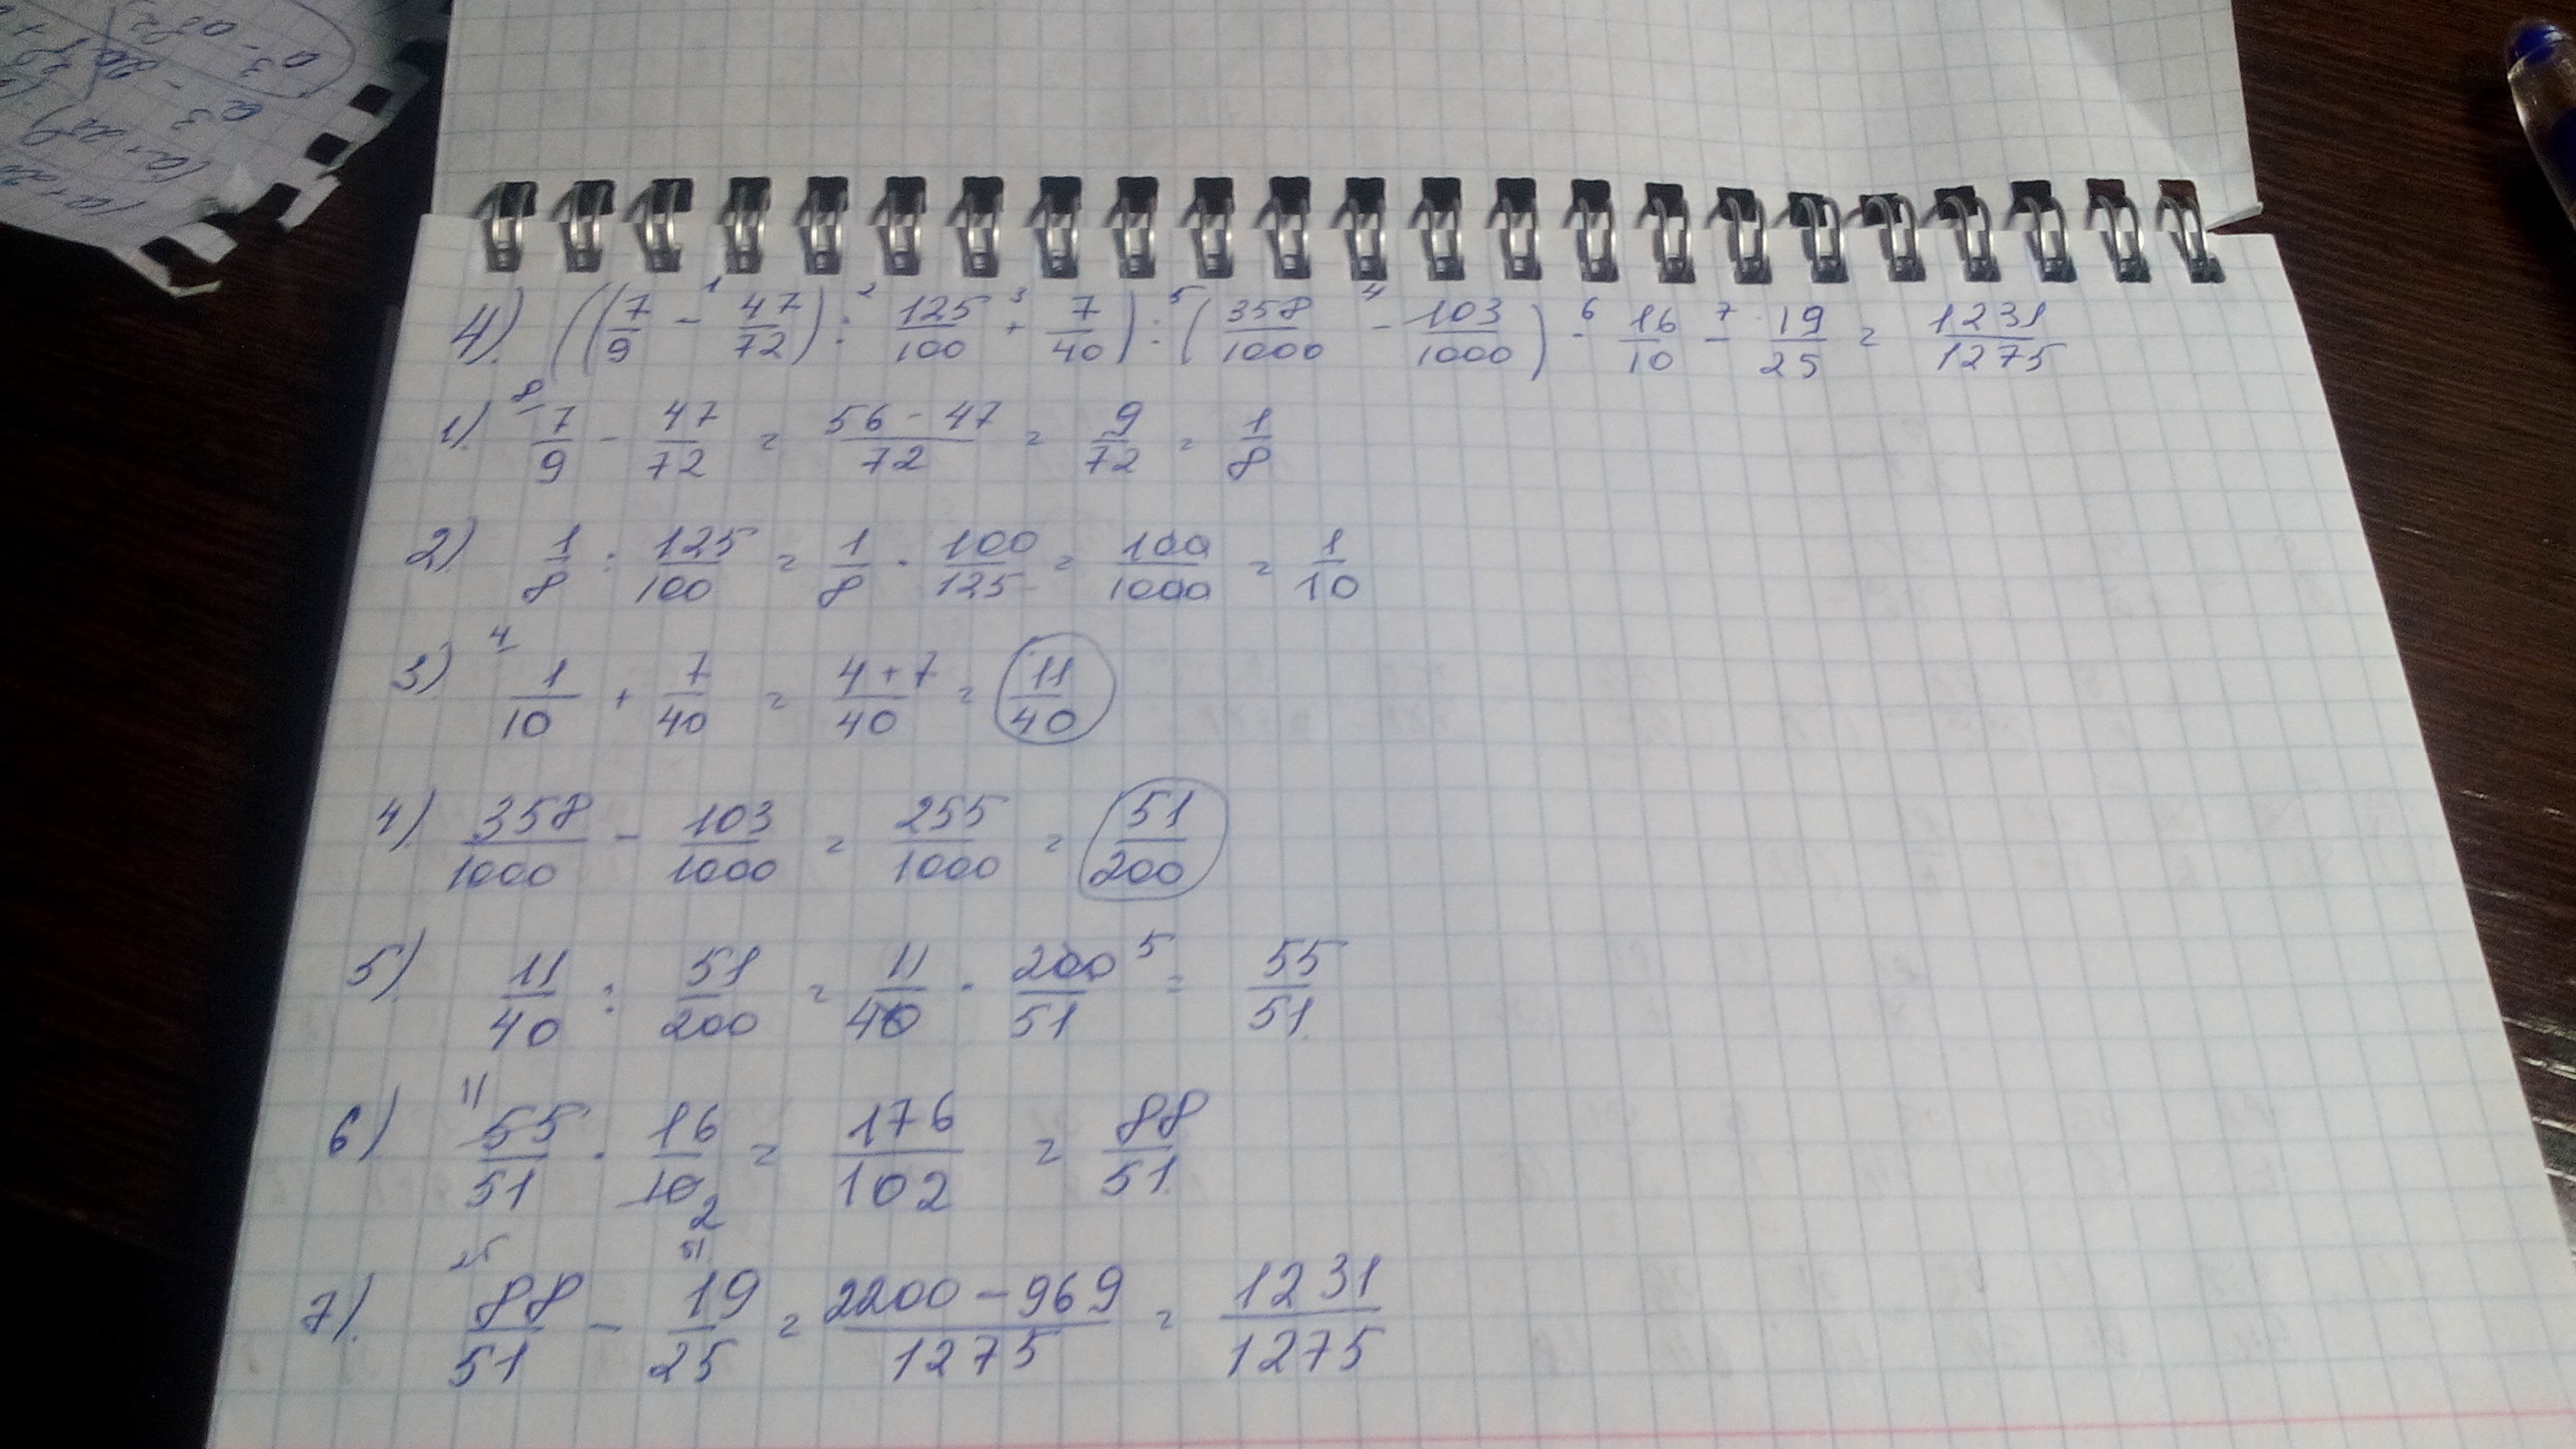 4) ((7/9 - 47/72) : 125/100 + 7/40) : (358/1000 - 103/1000) · 16/10 - 19/25 = 1231/1275
1) 7/9 - 47/72 = 56-47/72 = 9/72 = 1/8
2) 1/8 : 125/100 = 1/8 · 100/125 = 100/1000 = 1/10
3) 1/10 + 7/40 = 4+7/40 = 11/40
4) 358/1000 - 103/1000 = 255/1000 = 51/200
5) 11/40 : 51/200 = 11/40 · 200/51 5 = 55/51
6) 11 55/51 · 16/10 2 = 176/102 = 88/51
7) 25 88/51 - 51 19/25 = 2200-969/1275 = 1231/1275